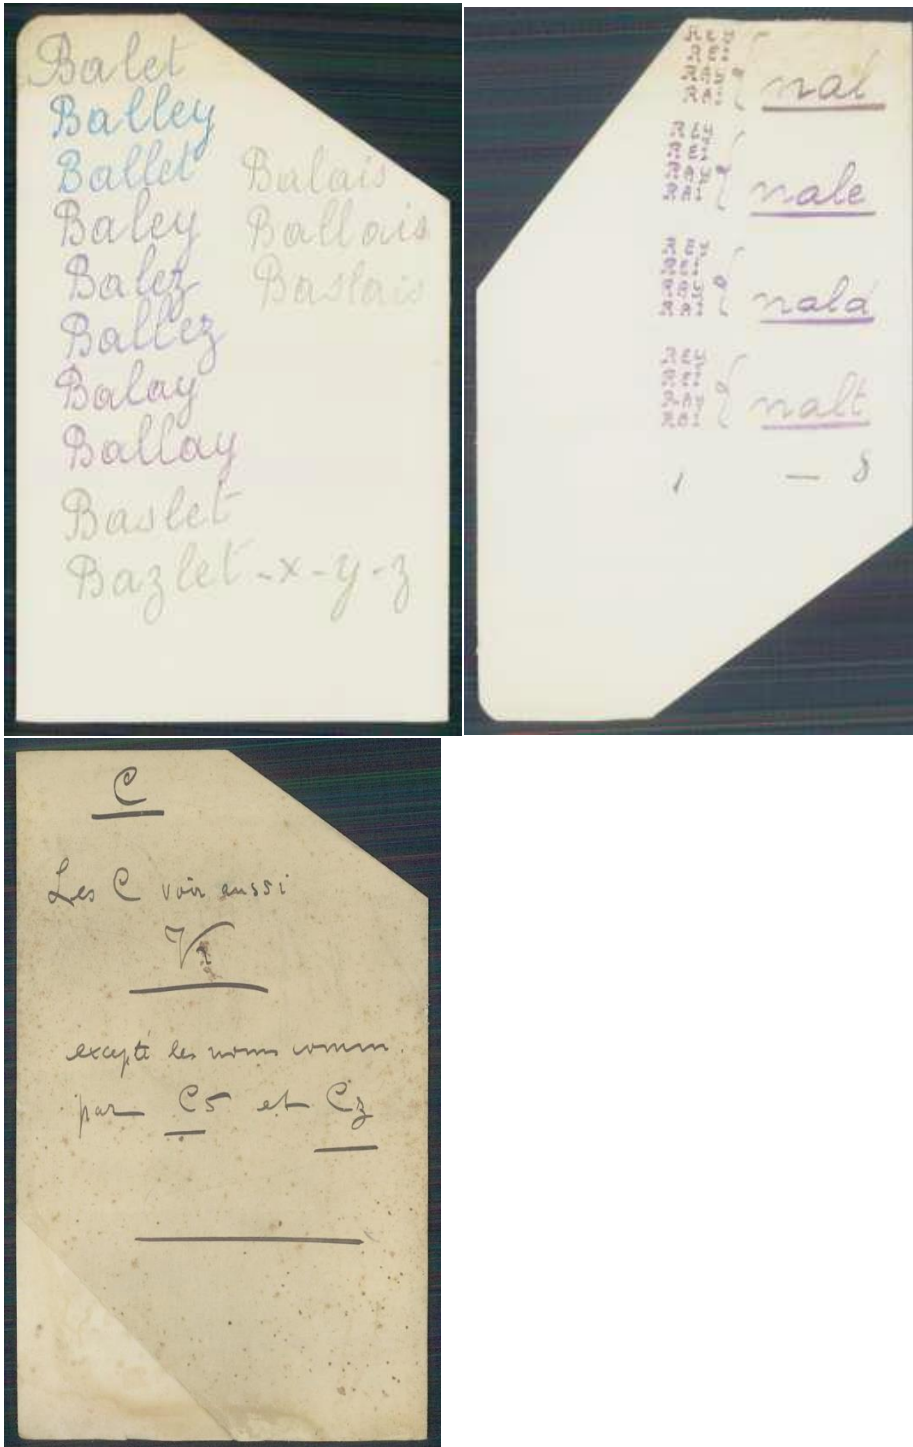 Balet
Balley
Ballet
Baley
Balez
Ballez
Balay
Ballay
Baslet
Bazlet -x-y-z
Balais
Ballais
Baslais
REY
REII
RAY
RAI
nal
REY
REII
RAY
RAI
nale
REY
REII
RAY
RAI
nala
REY
REII
RAY
RAI
nalt
1 — 8
C
Les C voir aussi
K
excepté les noms comm.
par CS et Cz